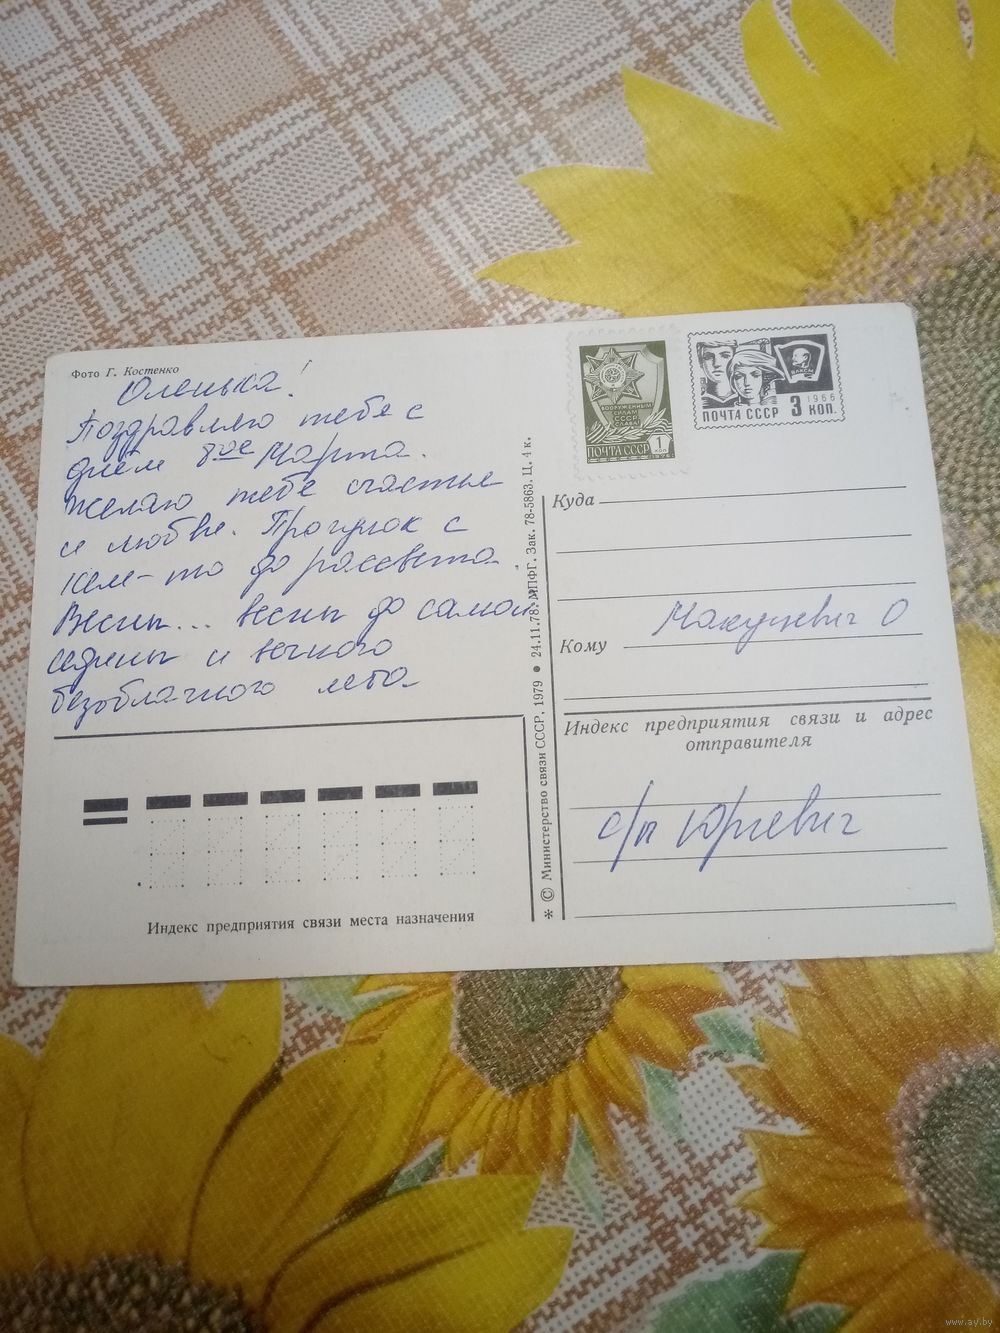 Фото Г. Костенко
Оленька!
Поздравляю тебя с
днём 8ое Марта.
Желаю тебе счастье
и любви. Прогулок с
кем-то до рассвета
Весны... весны до самой
седины и вечного
безоблачного лета
Индекс предприятия связи места назначения
* © Министерство связи СССР, 1979 • 24.11.78. МПФГ. Зак. 78-5863. Ц. 4 к.
ВООРУЖЕННЫМ
СИЛАМ
СССР
СЛАВА!
ПОЧТА СССР 1 КОП
1976
ВЛКСМ
1966
ПОЧТА СССР 3 КОП.
Куда
Кому
Макуневич О
Индекс предприятия связи и адрес
отправителя
с/п Юргевич
www.ay.by